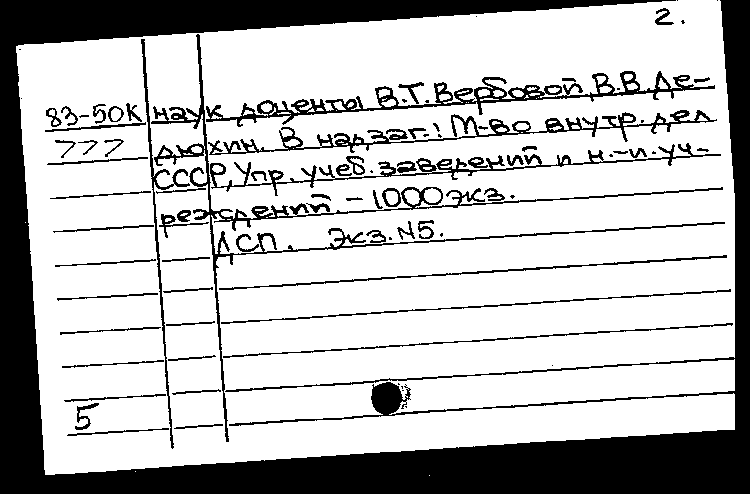 2.
83-50К наук доценты В.Т.Вербовой, В.В.Де-
777 дюхин. В надзаг.: М-во внутр. дел
СССР, Упр. учеб. заведений и н.-и. уч-
реждений. - 1000 экз.
ДСП. Экз. N5.
5